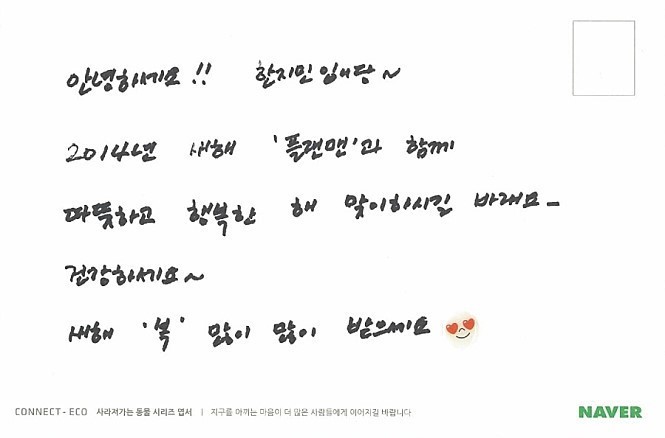 안녕하세요!! 한지민입니당~
2014년 새해 '플랜맨'과 함께
따뜻하고 행복한 해 맞이하시길 바래요-
건강하세요~
새해 '복' 많이 많이 받으세요
CONNECT - ECO 사라져가는 동물 시리즈 엽서 | 지구를 아끼는 마음이 더 많은 사람들에게 이어지길 바랍니다
NAVER